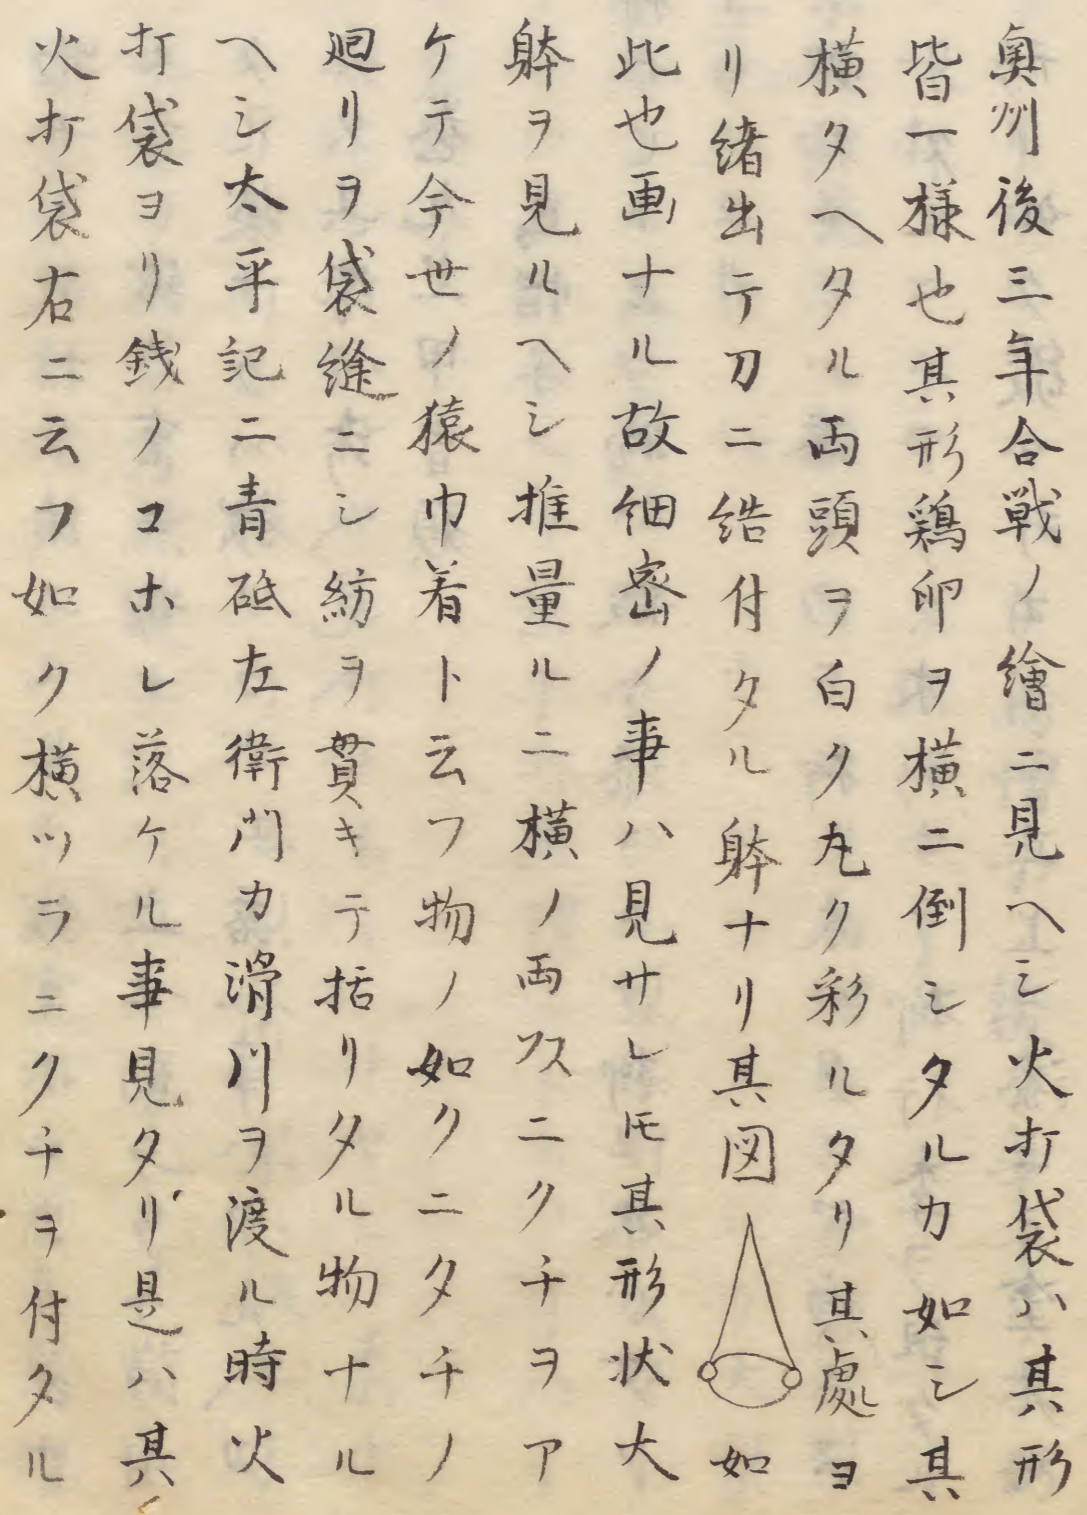 奥州後三年合戦ノ繪ニ見ヘシ火打袋ハ其形
皆一様也其形鶏卵ヲ横ニ倒シタルカ如シ其
横タヘタル両頭ヲ白ク丸ク彩ルタリ其處ヨ
リ緒出テ刀ニ結付タル躰ナリ其図如
此也画ナル故細密ノ事ハ見サレ𪜈其形状大
躰ヲ見ルヘシ推量ルニ横ノ両フスニクチヲア
ケテ今世ノ猿巾着ト云フ物ノ如クニタチノ
廻リヲ袋縫ニシ紡ヲ貫キテ括リタル物ナル
ヘシ太平記ニ青砥左衛門カ滑川ヲ渡ル時火
打袋ヨリ銭ノコホレ落ケル事見タリ是ハ其
火打袋右ニ云フ如ク横ツラニクチヲ付タル